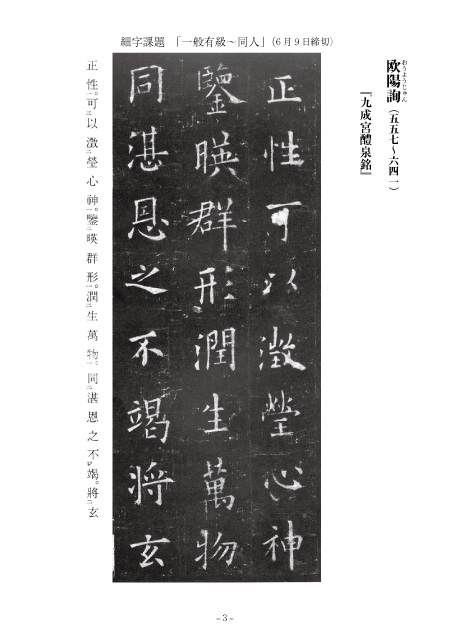 細字課題 「一般有級～同人」(6月9日締切)
おうようじゅん
欧陽詢（五五七～六四一）
『九成宮醴泉銘』
正性可以澂瑩心神
鑒暎群形潤生萬物
同湛恩之不竭將玄
正性。可二以澂一瑩心神。鑒二暎群形一。潤二生萬物一。同二湛恩之不レ竭。將二玄
－3－